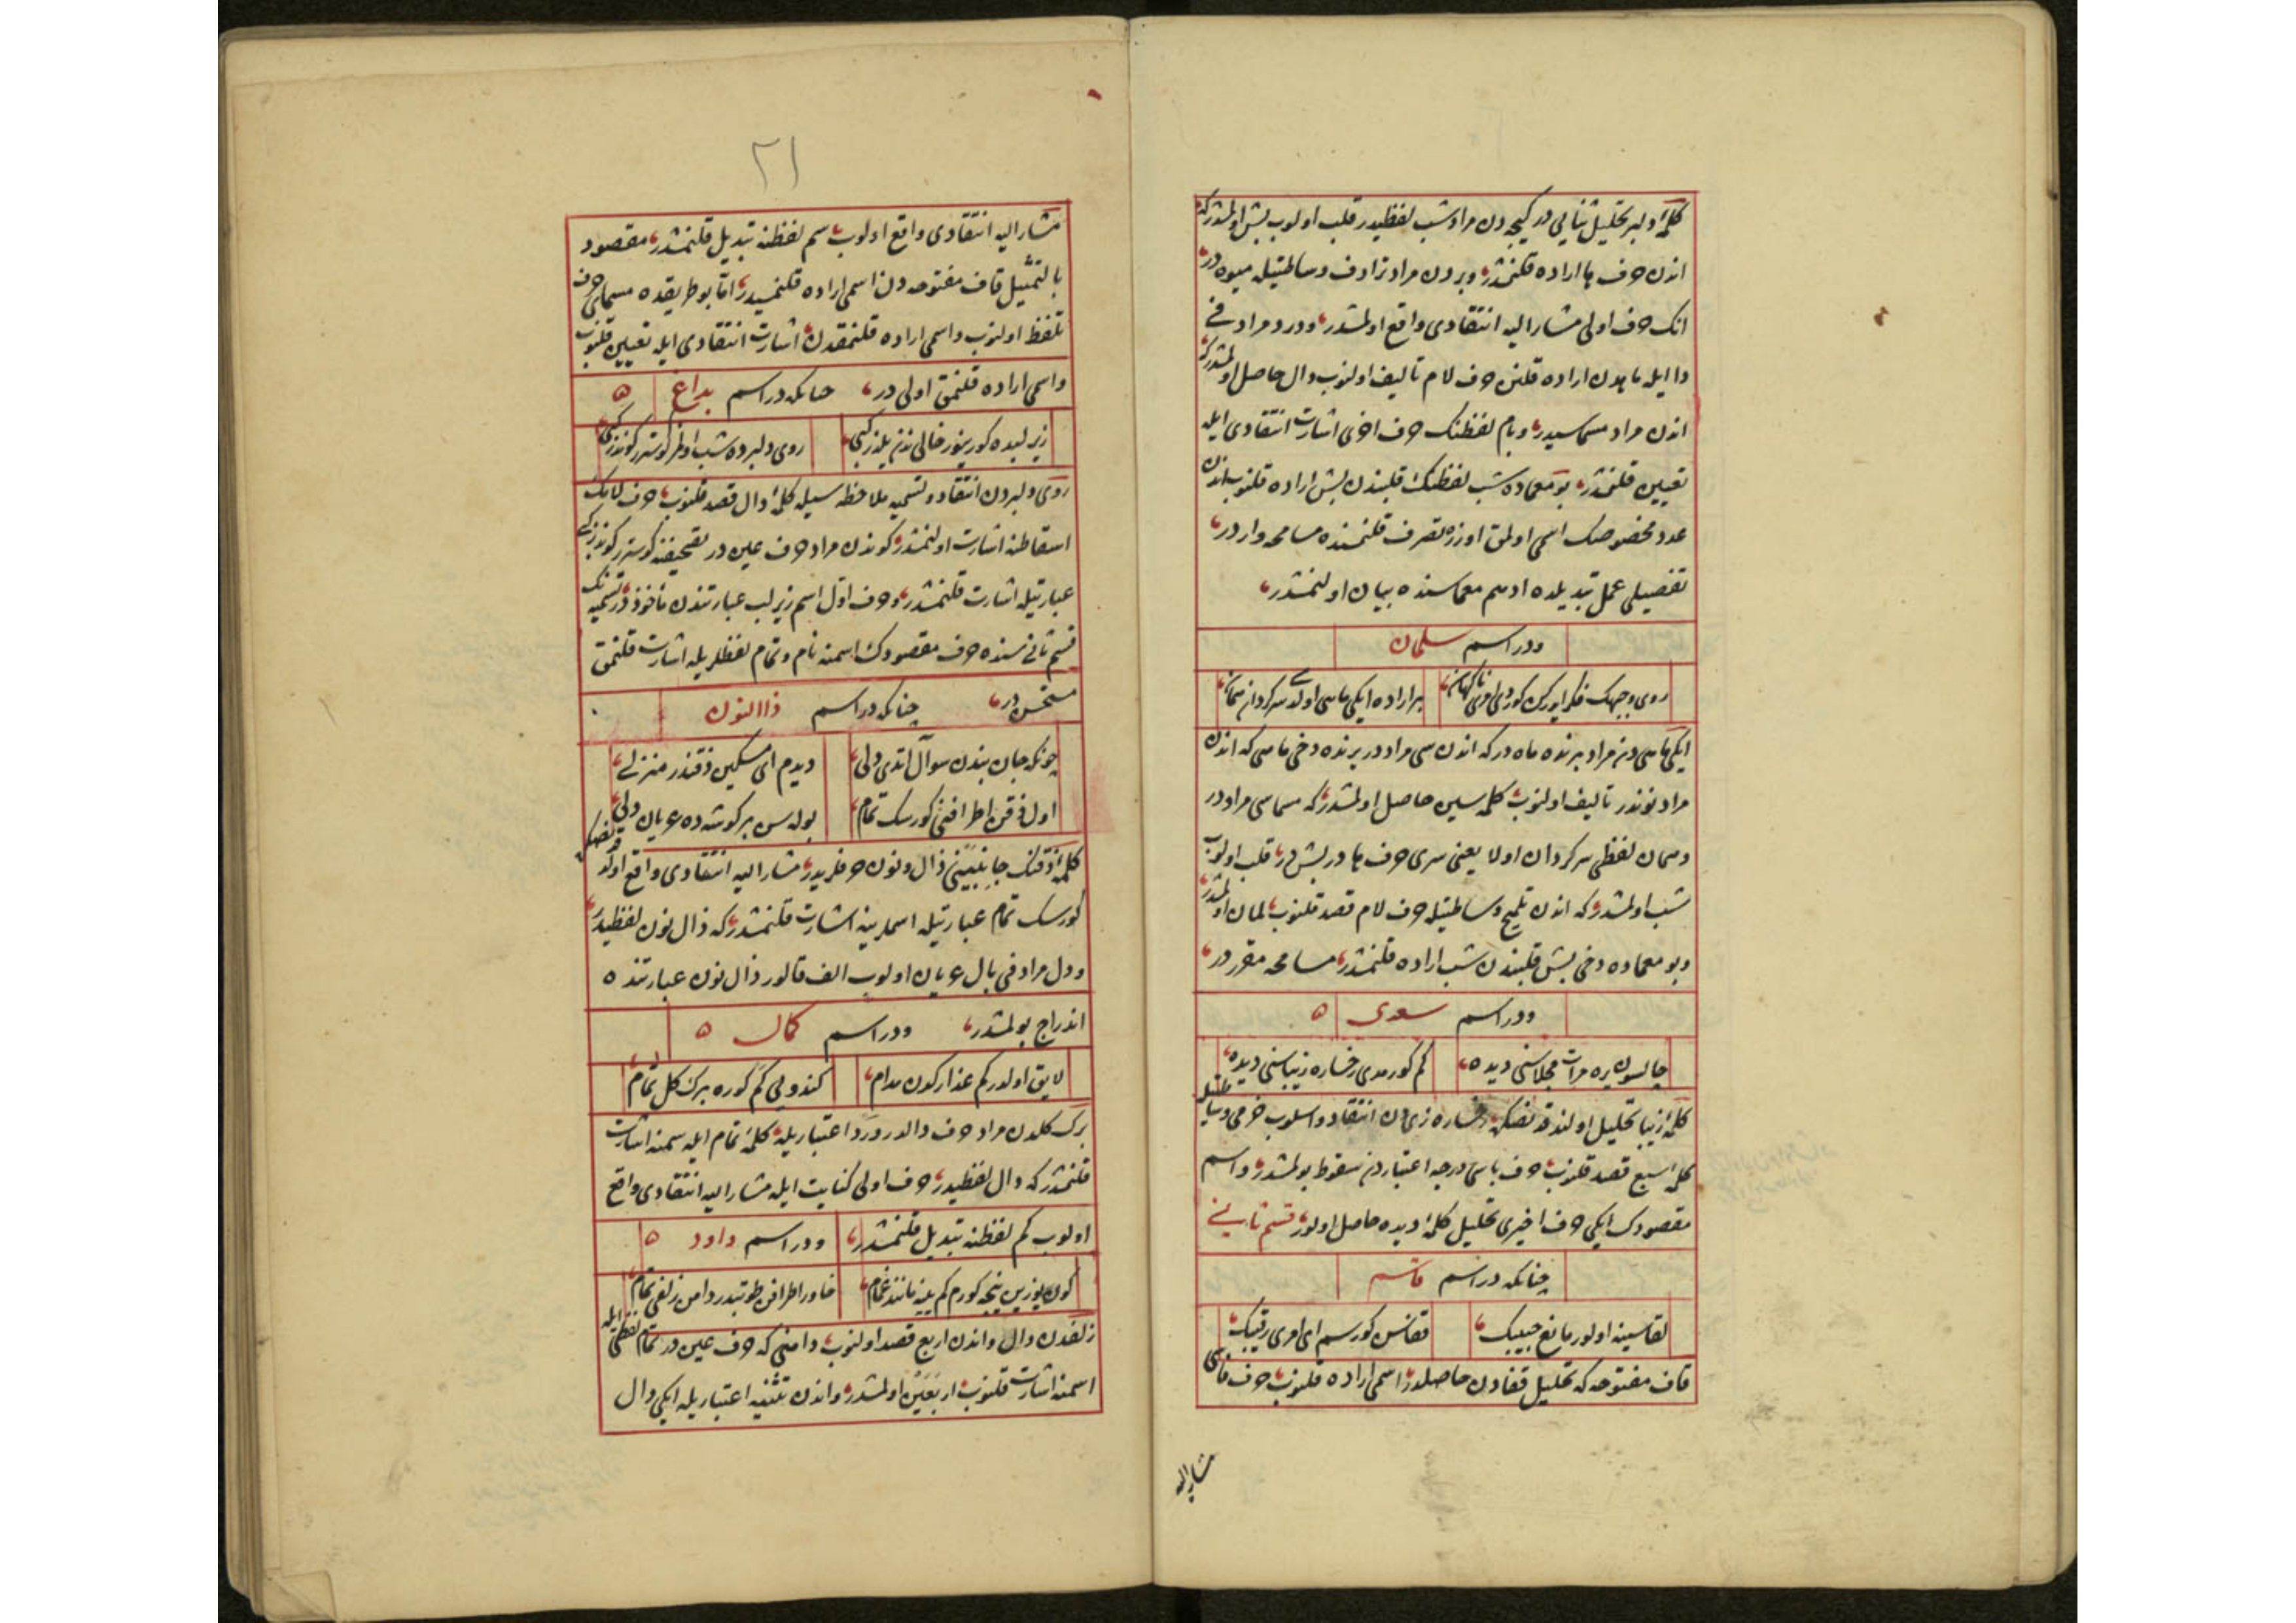 كلمۀ دلبر تحليل ثنائي در كيجه دن مراد شب لفظيدر قلب اولنوب بش اولمشدركه
اندن حرف ها اراده قلنمشدر وبردن مراد ترادف وساطتيله ميوه در
انك حرف اولى مشار اليه انتقادى واقع اولمشدر ودرد مراد في
دا ايله مابدن اراده قلنن حرف لام تأليف اولنوب دال حاصل اولمشدركه
اندن مراد مسماسيدر وبام لفظنك حرف اخرى اشارت انتقادى ايله
تعيين قلنمشدر بو معماده شب لفظنك قلبندن بش اراده قلنوب اندن
عدد مخصوصك اسمى اولمق اوزره تصرف قلنمنده مسامحه واردر
تفصيلى عمل تبديلده ادهم معماسنده بيان اولنمشدر
ودر اسم سلمان
روى وجهك فكر ايدركن كوردى امرى ناكهان
بر اراده ايكى ماهى اولدى سركردان همان
ايكى ماهى دن مراد برنده ماه در كه اندن سى مراد در برنده دخى ماهى كه اندن
مراد نوندر تأليف اولنوب كلمه سين حاصل اولمشدر كه مسماسى مراد در
وهمان لفظى سركردان اولا يعنى سرى حرف ها در بش در قلب اولنوب
شب اولمشدر كه اندن تلميح وساطتيله حرف لام قصد قلنوب لمان اولمشدر
وبو معماده دخى بش قلبندن شب اراده قلنمشدر مسامحه مقرر در
ودر اسم سعدى
چالسون يره مرآت مجلاسنى ديده
كم كورمدى رخساره زيباسنى ديده
كلمۀ زيبا تحليل اولندقدنصكره رخساره زى دن انتقاد واسلوب خرمى وساطتيله
كلمۀ سبع قصد قلنوب حرف باسى درجه اعتباردن سقوط بولمشدر واسم
مقصودك ايكى حرف اخيرى تحليل كلمۀ ديده حاصل اولور قسم ثانى
چنانكه در اسم قاسم
لقاسينه اولور مانع حبيبك
قفاسن كورسم اى امرى رقيبك
قاف مفتوحه كه تحليل قفادن حاصلدر اسمى اراده قلنوب حرف فاسى
مشار اليه
٢١
مشار اليه انتقادى واقع اولوب سم لفظنه تبديل قلنمشدر مقصود
بالتمثيل قاف مفتوحه دن اسمى اراده قلنمسيدر اما بو طريقده مسماى حرف
تلفظ اولنوب واسمى اراده قلنمقدن اشارت انتقادى ايله تعيين قلنوب
واسمى اراده قلنمق اولى در چنانكه در اسم بداغ
زير لبده كورينور خالى نزيلنر كبى
روى دلبرده شب اولمز كوستر كوندز كبى
روى دلبردن انتقاد وتسميه ملاحظه سيله كلمۀ دال قصد قلنوب حرف لامك
اسقاطنه اشارت اولنمشدر كوندن مراد حرف عين در تصحيفنه كوستر كوندز كبى
عبارتيله اشارت قلنمشدر وحرف اول اسم زير لب عبارتندن مأخوذدر تسميه نك
قسم ثانى سنده حرف مقصودك اسمنه نام وتمام لفظلريله اشارت قلنمق
مستحسن در چنانكه در اسم ذا النون
چونكه جان بندن سوآل اتدى دلى
ديدم اى مسكين ذقندر منزلى
اول ذقن اطرافنى كورسك تمام
بوله سن بر كوشه ده عريان دلى
كلمۀ ذقنك جانبينى ذال ونون حرفلريدر مشار اليه انتقادى واقع اولدقدنصكره
كورسك تمام عبارتيله اسملرينه اشارت قلنمشدر كه ذال نون لفظيدر
ودل مراد في بال عريان اولوب الف قالور ذال نون عبارتنده
اندراج بولمشدر ودر اسم كمال
لايق اولدركم عذارك‌ون مدام
كندولى كم كوره برك كل تمام
برك كلدن مراد حرف دالدر ورد اعتباريله كلمۀ تمام ايله سمنه اشارت
قلنمشدر كه دال لفظيدر حرف اولى كنايت ايله مشار اليه انتقادى واقع
اولوب كم لفظنه تبديل قلنمشدر ودر اسم داود
كون يوزين نيجه كورم كم ينه مانند غمام
خاور اطرافن طوتبدر دامن زلفى تمام
زلفدن دال واندن اربع قصد اولنوب دامنى كه حرف عين در تمام لفظى ايله
اسمنه اشارت قلنوب اربعين اولمشدر واندن تثنيه اعتباريله ايكى دال